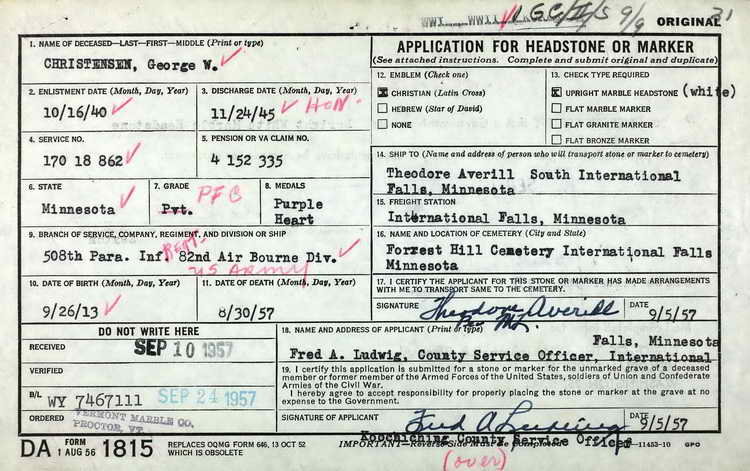 WWI WWII
ORIGINAL
31
9/9
1. NAME OF DECEASED—LAST—FIRST—MIDDLE (Print or type)
CHRISTENSEN, George W.
2. ENLISTMENT DATE (Month, Day, Year)
3. DISCHARGE DATE (Month, Day, Year)
10/16/40
11/24/45 HON.
4. SERVICE NO.
5. PENSION OR VA CLAIM NO.
170 18 862
4 152 335
6. STATE
7. GRADE
8. MEDALS
Minnesota
Pvt. PFC
Purple
Heart
9. BRANCH OF SERVICE, COMPANY, REGIMENT, AND DIVISION OR SHIP
508th Para. Inf. REGT. 82nd Air Bourne Div.
US ARMY
10. DATE OF BIRTH (Month, Day, Year)
11. DATE OF DEATH (Month, Day, Year)
9/26/13
8/30/57
APPLICATION FOR HEADSTONE OR MARKER
(See attached instructions. Complete and submit original and duplicate)
12. EMBLEM (Check one)
CHRISTIAN (Latin Cross)
HEBREW (Star of David)
NONE
13. CHECK TYPE REQUIRED
UPRIGHT MARBLE HEADSTONE (white)
FLAT MARBLE MARKER
FLAT GRANITE MARKER
FLAT BRONZE MARKER
14. SHIP TO (Name and address of person who will transport stone or marker to cemetery)
Theodore Averill South International
Falls, Minnesota
15. FREIGHT STATION
International Falls, Minnesota
16. NAME AND LOCATION OF CEMETERY (City and State)
Forrest Hill Cemetery International Falls
Minnesota
17. I CERTIFY THE APPLICANT FOR THIS STONE OR MARKER HAS MADE ARRANGEMENTS
WITH ME TO TRANSPORT SAME TO THE CEMETERY.
SIGNATURE
Theodore Averill
DATE
9/5/57
DO NOT WRITE HERE
RECEIVED
SEP 10 1957
VERIFIED
B/L
WY 7467111
SEP 24 1957
ORDERED
VERMONT MARBLE CO.
PROCTOR, VT.
18. NAME AND ADDRESS OF APPLICANT (Print or type)
Falls, Minnesota
Fred A. Ludwig, County Service Officer, International
19. I certify this application is submitted for a stone or marker for the unmarked grave of a deceased
member or former member of the Armed Forces of the United States, soldiers of Union and Confederate
Armies of the Civil War.
I hereby agree to accept responsibility for properly placing the stone or marker at the grave at no
expense to the Government.
SIGNATURE OF APPLICANT
Fred A Ludwig
DATE
9/5/57
Koochiching County Service Officer
DA FORM 1 AUG 56 1815
REPLACES OQMG FORM 646, 13 OCT 52
WHICH IS OBSOLETE
IMPORTANT—Reverse Side Must Be Completed
11453-10 GPO
(over)